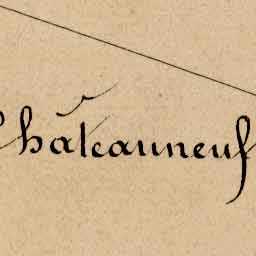 Châteauneuf